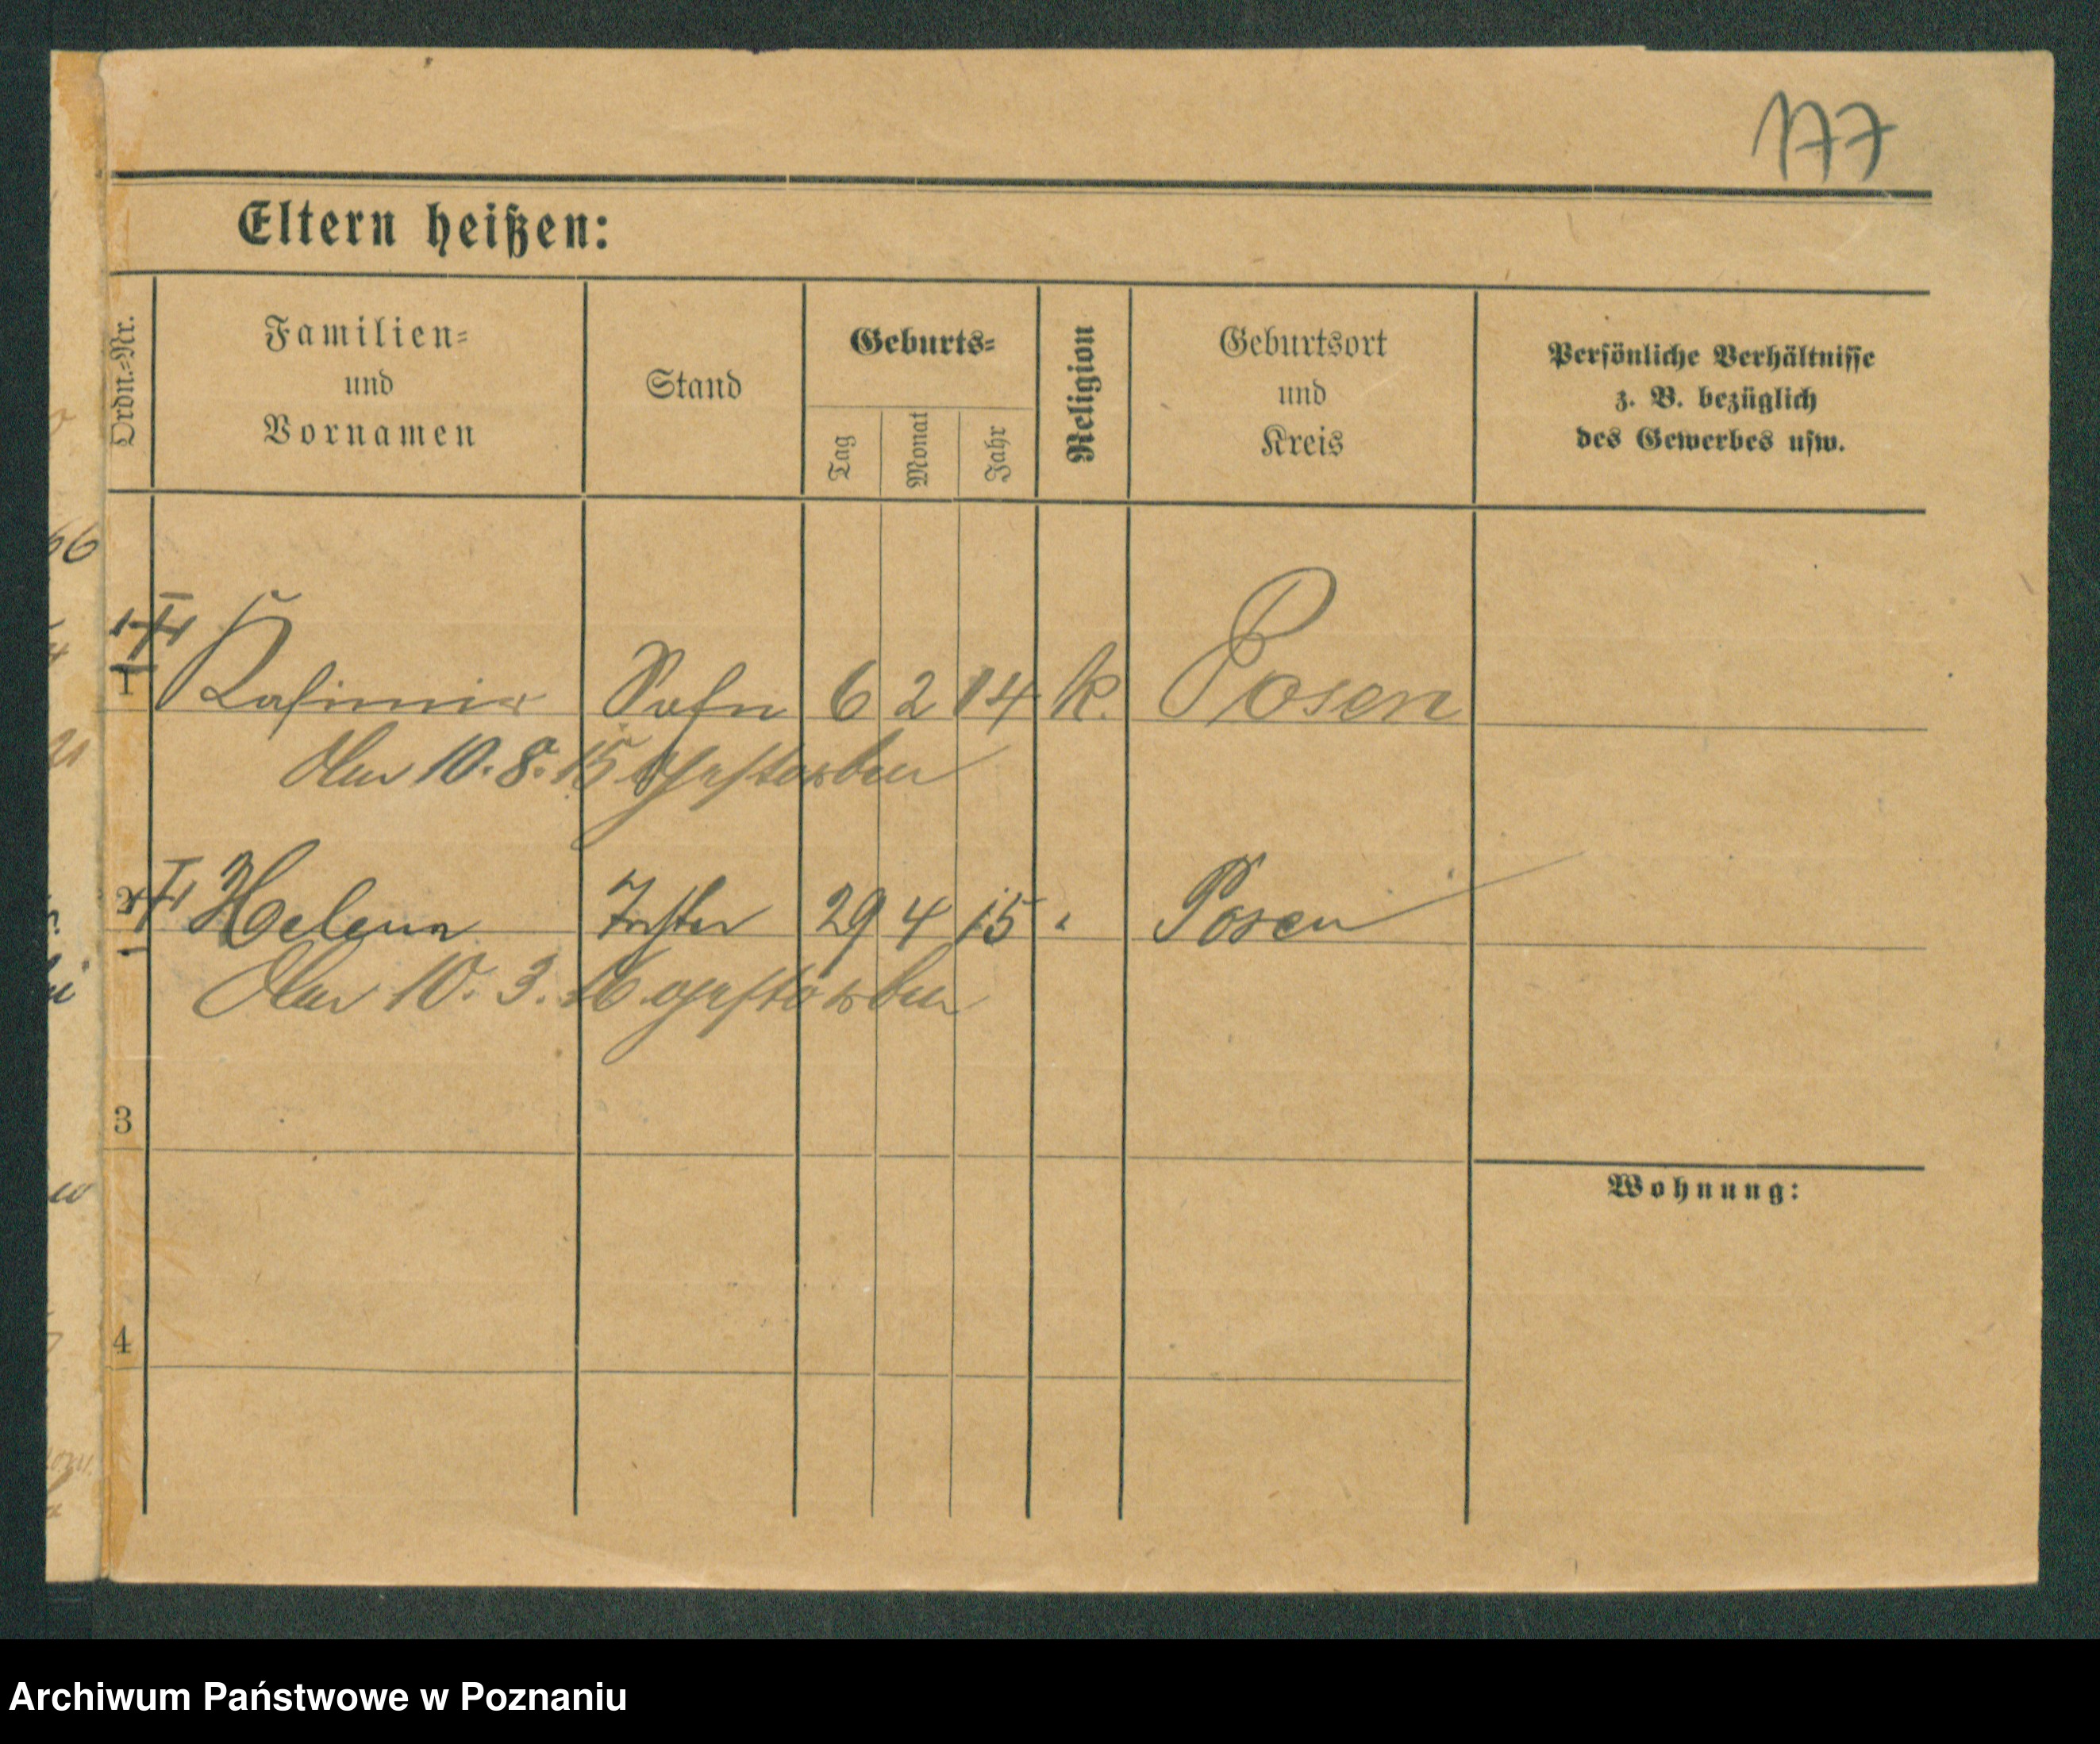 177
Eltern heißen:
Ordn.-Nr.
Familien-
und
Vornamen
Stand
Geburts-
Tag
Monat
Jahr
Religion
Geburtsort
und
Kreis
Persönliche Verhältnisse
z. B. bezüglich
des Gewerbes usw.
1 Kasimir Sohn 6 2 14 k. Posen
Am 10. 8. 15 gestorben
2 Helena 29 4 15 " Posen
Am 10. 3. 16 gestorben
3
Wohnung:
4
Archiwum Państwowe w Poznaniu